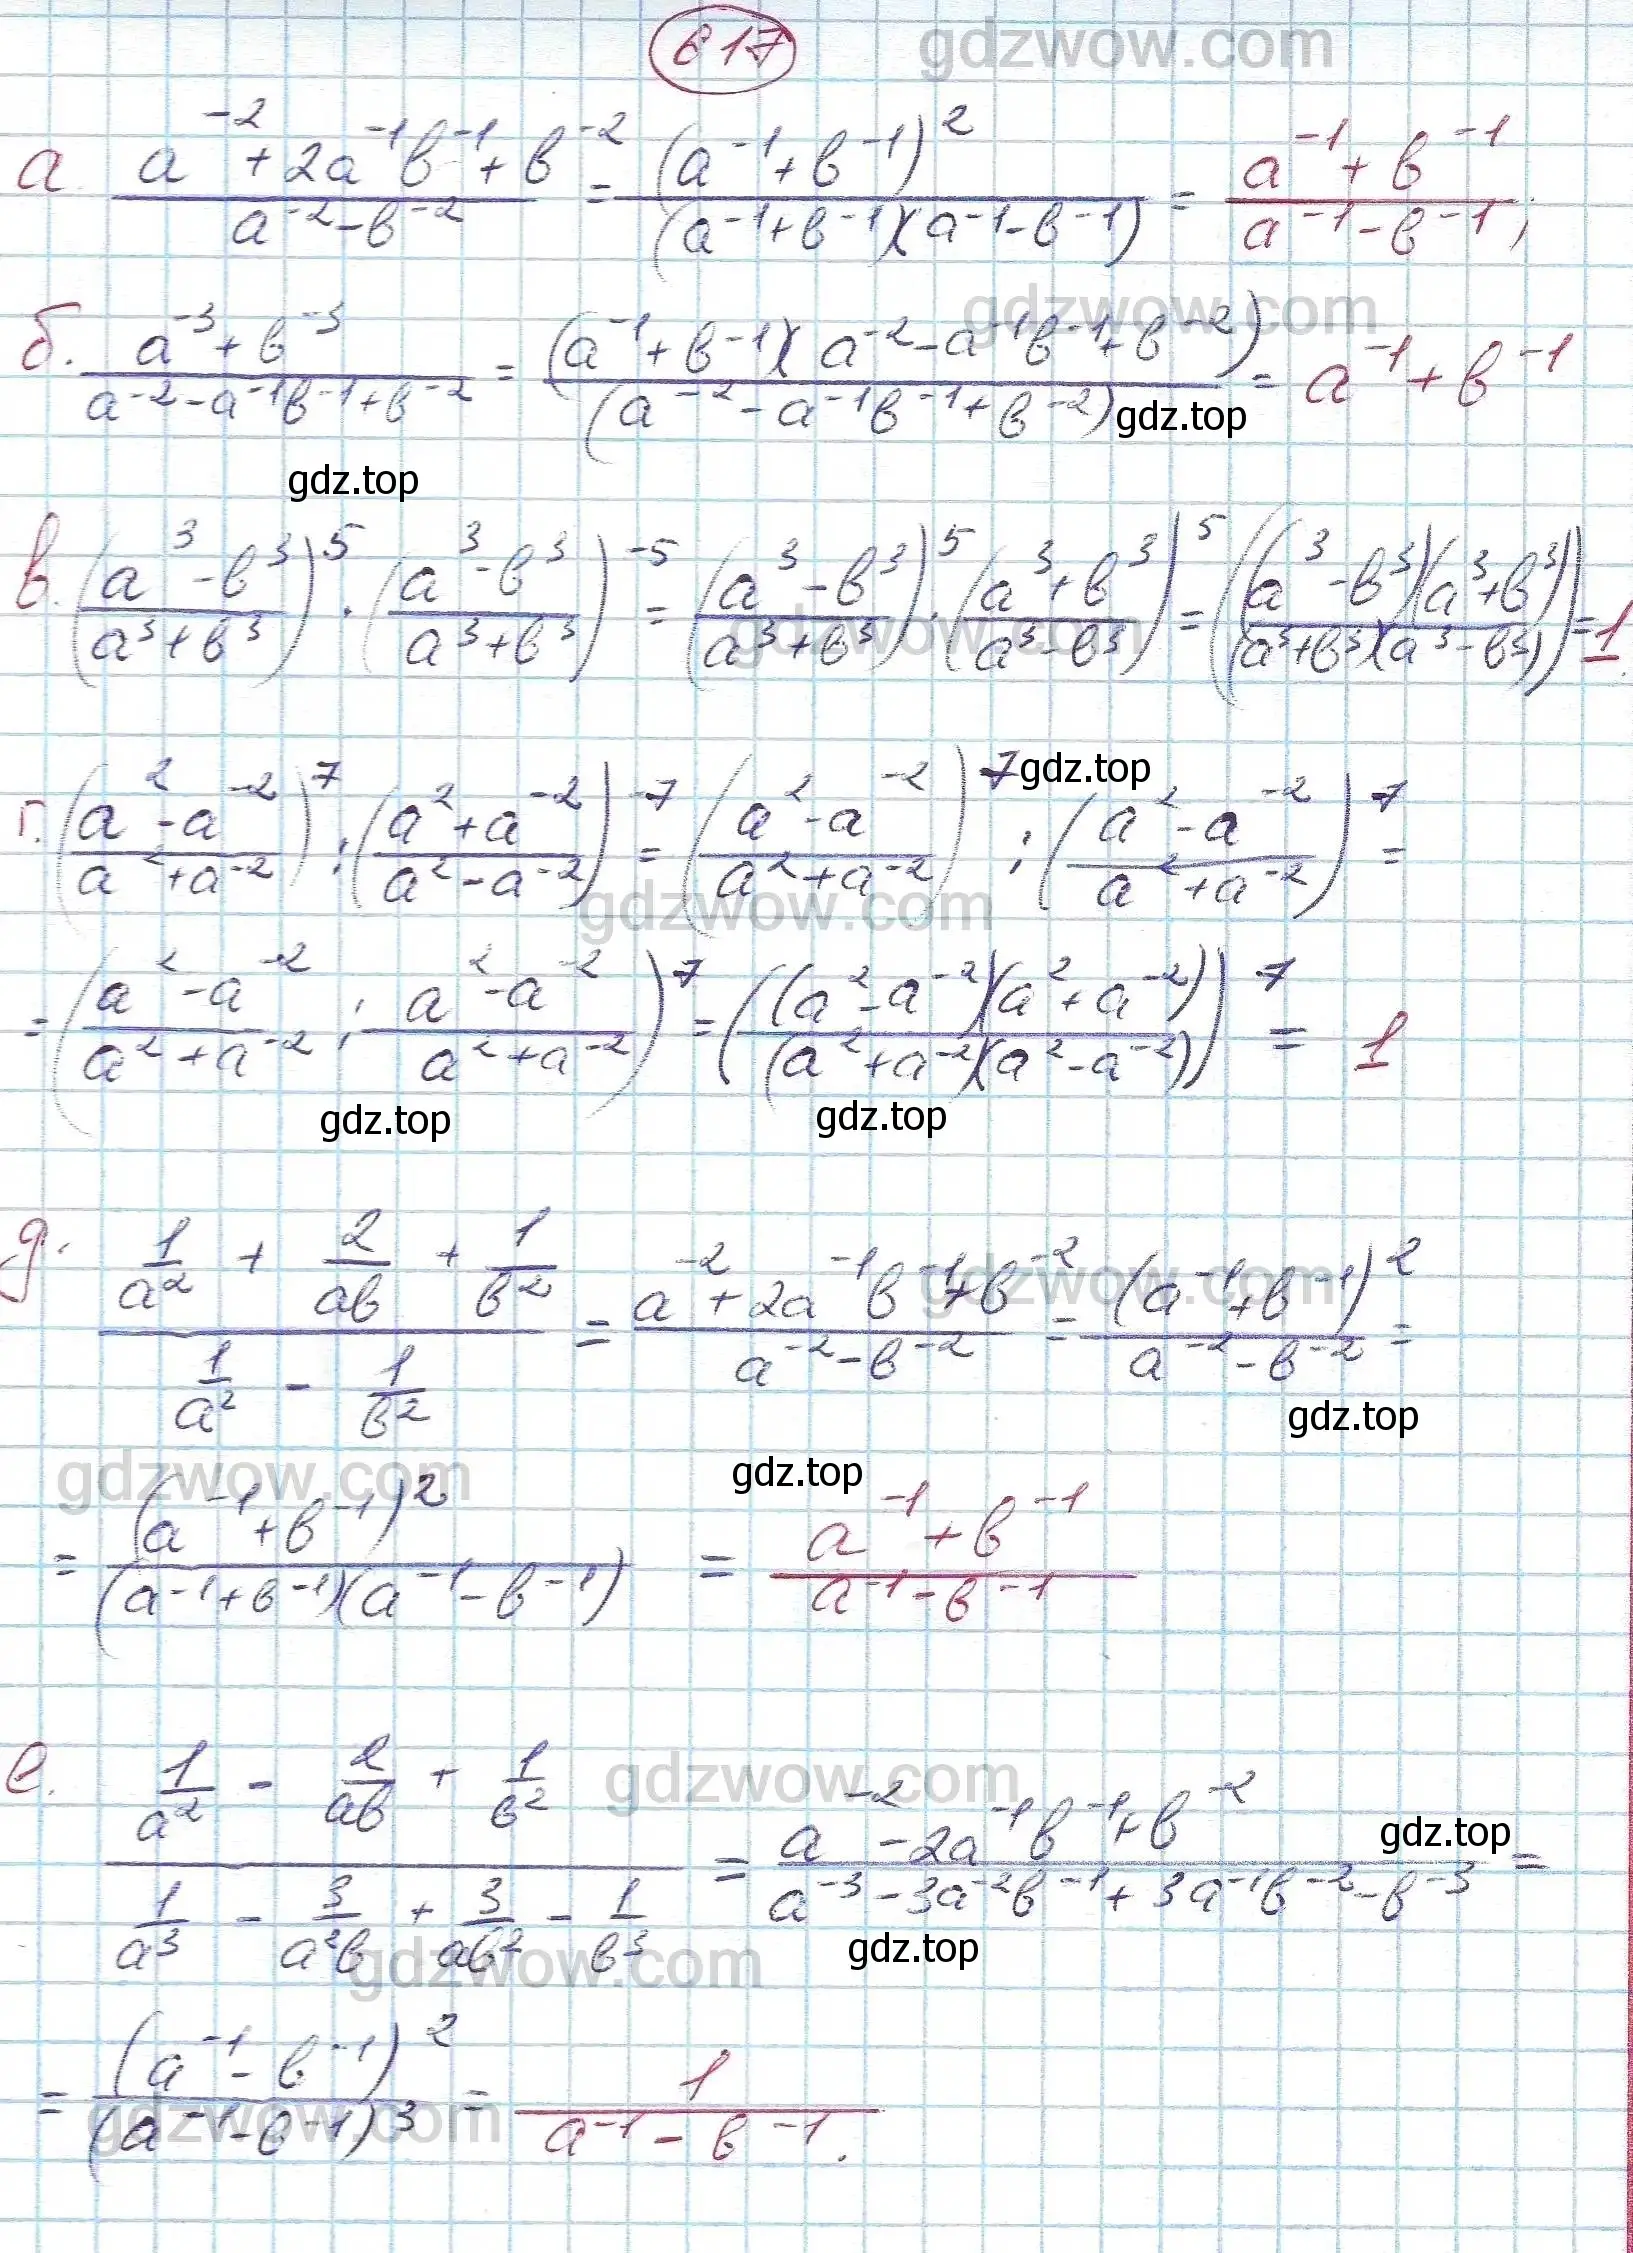 617 gdzwow.com
а. (a^-2 + 2a^-1 b^-1 + b^-2)/(a^-2 - b^-2) = (a^-1 + b^-1)^2/((a^-1 + b^-1)(a^-1 - b^-1)) = (a^-1 + b^-1)/(a^-1 - b^-1);
gdzwow.com
б. (a^-3 + b^-3)/(a^-2 - a^-1 b^-1 + b^-2) = ((a^-1 + b^-1)(a^-2 - a^-1 b^-1 + b^-2))/((a^-2 - a^-1 b^-1 + b^-2)) = a^-1 + b^-1
gdz.top
gdz.top
в. ((a^3 - b^3)/(a^3 + b^3))^5 · ((a^3 - b^3)/(a^3 + b^3))^-5 = ((a^3 - b^3)/(a^3 + b^3))^5 · ((a^3 + b^3)/(a^3 - b^3))^5 = (((a^3 - b^3)(a^3 + b^3))/((a^3 + b^3)(a^3 - b^3))) = 1.
gdzwow.com
gdz.top
г. ((a^2 - a^-2)/(a^2 + a^-2))^7 : ((a^2 + a^-2)/(a^2 - a^-2))^-7 = ((a^2 - a^-2)/(a^2 + a^-2))^7 : ((a^2 - a^-2)/(a^2 + a^-2))^7 =
gdzwow.com
= ((a^2 - a^-2)/(a^2 + a^-2) : (a^2 - a^-2)/(a^2 + a^-2))^7 = (((a^2 - a^-2)(a^2 + a^-2))/((a^2 + a^-2)(a^2 - a^-2)))^7 = 1
gdz.top gdz.top
д. (1/a^2 + 2/ab + 1/b^2)/(1/a^2 - 1/b^2) = (a^-2 + 2a^-1 b^-1 + b^-2)/(a^-2 - b^-2) = (a^-1 + b^-1)^2/(a^-2 - b^-2) =
gdzwow.com
gdz.top
gdzwow.com gdz.top
= (a^-1 + b^-1)^2/((a^-1 + b^-1)(a^-1 - b^-1)) = (a^-1 + b^-1)/(a^-1 - b^-1)
gdzwow.com
е. (1/a^2 - 2/ab + 1/b^2)/(1/a^3 - 3/a^2b + 3/ab^2 - 1/b^3) = (a^-2 - 2a^-1 b^-1 + b^-2)/(a^-3 - 3a^-2 b^-1 + 3a^-1 b^-2 - b^-3) =
gdz.top
gdzwow.com gdz.top
= (a^-1 - b^-1)^2/(a^-1 - b^-1)^3 = 1/(a^-1 - b^-1).
gdzwow.com